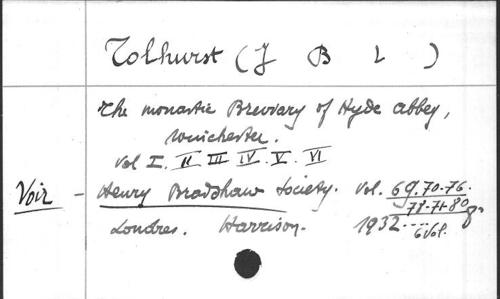 Tolhurst (J B L)
The monastic Breviary of Hyde abbey,
Winchester.
Vol I. II III IV. V. VI
Voir - Henry Bradshaw Society. Vol. 69.70-76.
78-71-80
Londres. Harrison. 1932.... 8°
6 Vol.